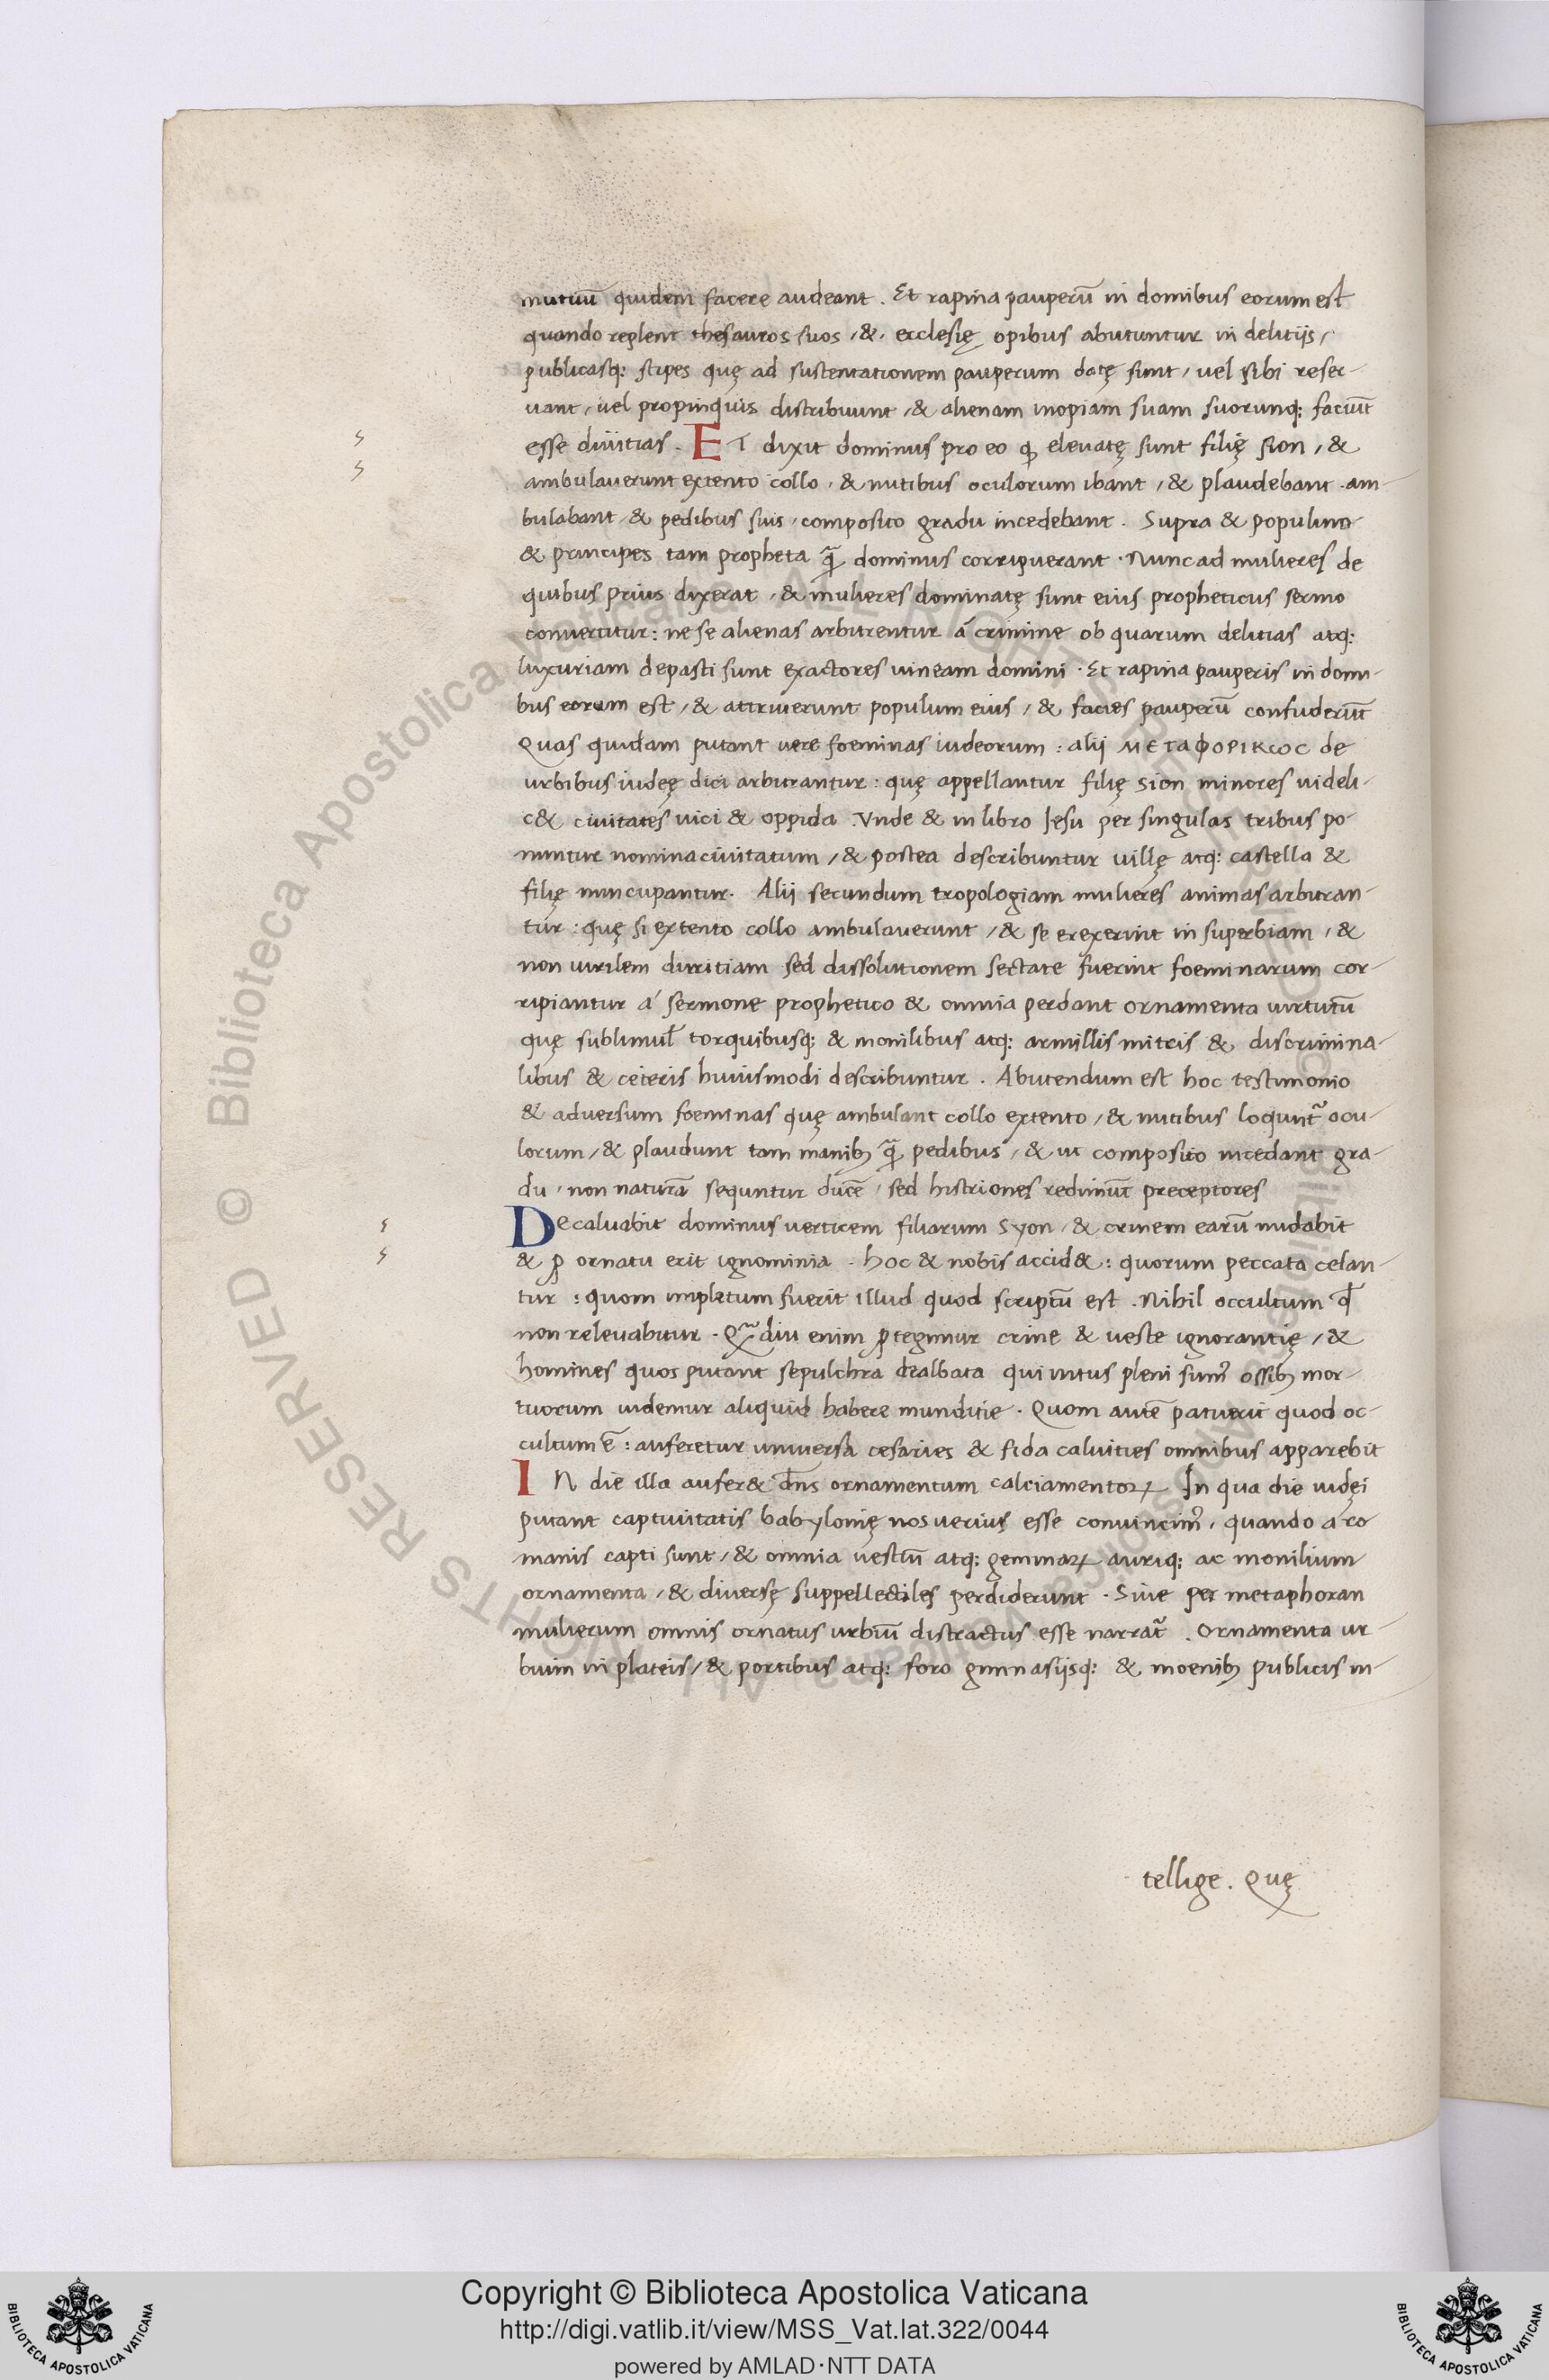 mutuū quidem facere audeant . Et rapina pauperū in domibus eorum est
quando replent thesauros suos , & , ecclesię opibus abutuntur in delitijs ,
publicasq; stipes quę ad sustentationem pauperum datę sunt , vel sibi reser-
uant , uel propinquis distribuunt , & alienam inopiam suam suorunq; faciūt
esse diuitias . ET dixit dominus pro eo ꝙ eleuatę sunt filię sion , &
ambulauerunt extento collo , & nutibus oculorum ibant , & plaudebant . am-
bulabant , & pedibus suis , composito gradu incedebant . Supra & populum
& principes tam propheta q̄ꝫ dominus corripuerant . Nunc ad mulieres de
quibus prius dixerat , & mulieres dominatę sunt eius propheticus sermo
conuertitur : ne se alienas arbitrentur á crimine ob quarum delitias atq;
luxuriam depasti sunt exactores uineam domini . Et rapina pauperis in domi-
bus eorum est , & attriuerunt populum eius , & facies pauperū confuderūt
Quas quidam putant uere foeminas iudeorum : alij ΜΕΤΑΦΟΡΙΚωC de
urbibus iudeę dici arbitrantur : quę appellantur filię sion minores uideli-
c& ciuitates uici & oppida . Vnde & in libro Iesu per singulas tribus po-
nuntur nomina ciuitatum , & postea describuntur uillę atq; castella &
filię nuncupantur . Alij secundum tropologiam mulieres animas arbitran-
tur : quę si extento collo ambulauerunt , & se erexerint in superbiam , &
non uirilem duritiam sed dissolutionem sectate fuerint foeminarum cor-
ripiantur á sermone prophetico & omnia perdant ornamenta uirtutū
quę torquibusq; & monilibus atq; armillis mitris & discrimina-
libus & ceteris huiusmodi describuntur . Abutendum est hoc testimonio
& aduersum foeminas quę ambulant collo extento , & nutibus loqunt᷑ ocu-
lorum , & plaudunt tam manibꝫ q̄ꝫ pedibus , & ut composito incedant gra-
du , non naturā sequntur ducē , sed histriones redimūt preceptores
Decaluabit dominus uerticem filiarum syon , & crinem earū nudabit
& ꝓ ornatu erit ignominia . hoc & nobis accid& : quorum peccata celan-
tur : quom impletum fuerit illud quod scriptū est . Nihil occultum qđ
non releuabitur . Qꝫ̄ diu enim ꝓtegimur crine & ueste ignorantię , &
homines quos putant sepulchra dealbata qui intus pleni sumꝰ ossibꝫ mor-
tuorum uidemur aliquid habere munditie . Quom autē patuerit quod oc-
cultum ē : auferetur uniuersa cesaries & fida caluities omnibus apparebit
IN die illa aufer& dn̄s ornamentum calciamentoꝝ In qua die iudęi
putant captiuitatis babylonię nos uerius esse conuincimꝰ , quando a ro
manis capti sunt , & omnia uestiū atq; gemmaꝝ auriq; ac monilium
ornamenta , & diuersę suppellectiles perdiderunt . Siue per metaphoran
mulierum omnis ornatus urbiū distractus esse narrat᷑ . Ornamenta ur
bium in plateis , & portibus atq; foro gimnasijsq; & moenibꝫ publicis in-
tellige . Quę
© Biblioteca Apostolica Vaticana ALL RIGHTS RESERVED
© Biblioteca Apostolica Vaticana ALL RIGHTS RESERVED
Copyright © Biblioteca Apostolica Vaticana
http://digi.vatlib.it/view/MSS_Vat.lat.322/0044
powered by AMLAD·NTT DATA
BIBLIOTECA APOSTOLICA VATICANA
BIBLIOTECA APOSTOLICA VATICANA